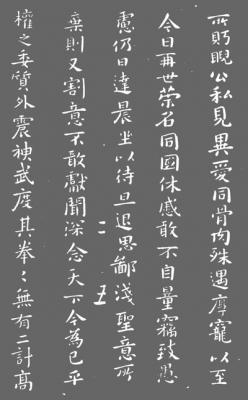 所盱睨公私見異愛同骨肉殊遇厚寵以至
今日再世榮名同國休慼敢不自量竊致愚
慮仍日達晨坐以待旦退思鄙淺聖意所
二五
棄則又割意不敢獻聞深念天下今為已平
權之委質外震神武度其拳〻無有二計高